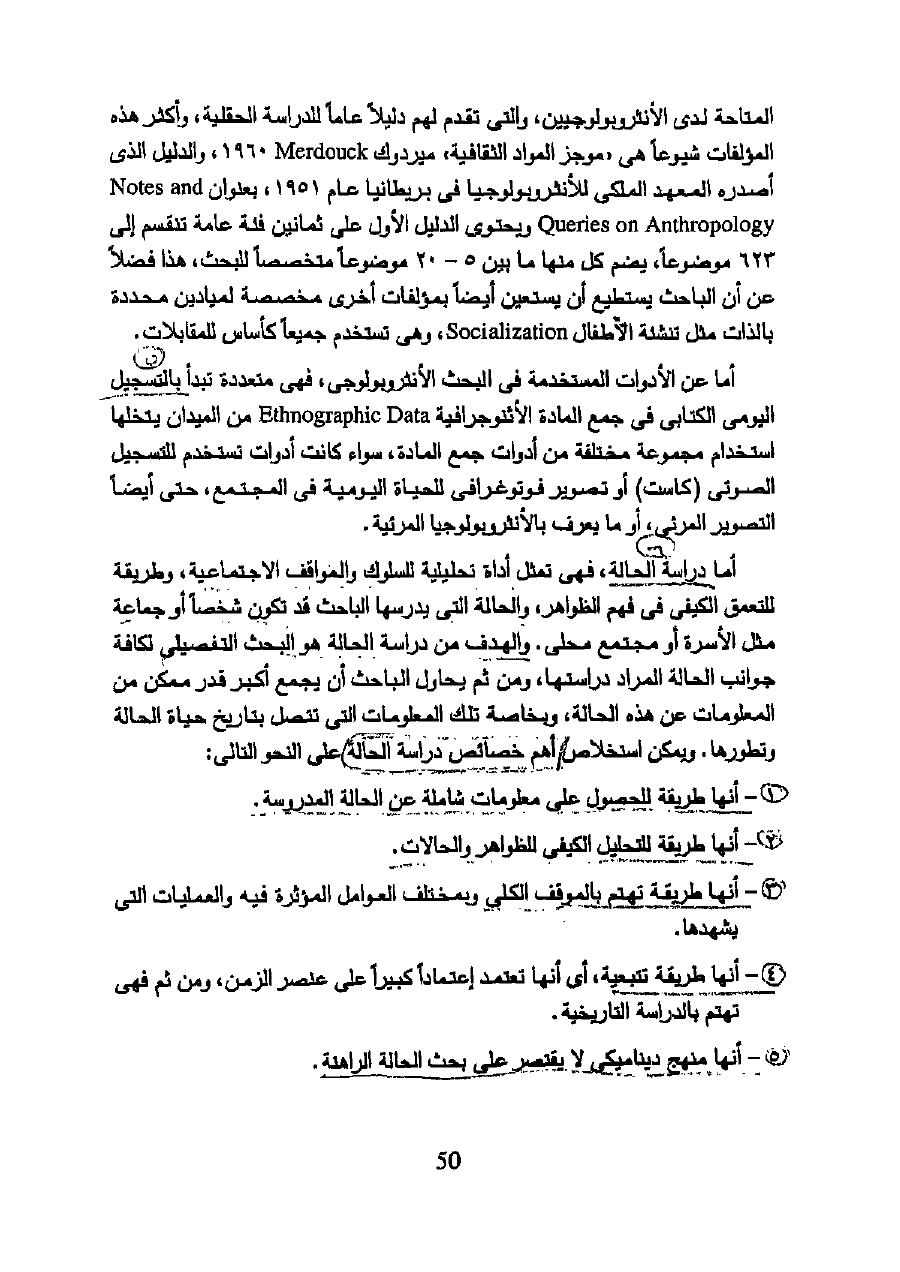 المتاحة لدى الأنثروبولوجيين، والتى تقدم لهم دليلاً عاماً للدراسة الحقلية، وأكثر هذه
المؤلفات شيوعاً هى «موجز المواد الثقافية» ميردوك Merdouck ١٩٦٠، والدليل الذى
أصدره المعهد الملكى للأنثروبولوجيا فى بريطانيا عام ١٩٥١، بعنوان Notes and
Queries on Anthropology ويحتوى الدليل الأول على ثمانين فئة عامة تنقسم إلى
٦٢٣ موضوعاً، يضم كل منها ما بين ٥ – ٢٠ موضوعاً متخصصاً للبحث، هذا فضلاً
عن أن الباحث يستطيع أن يستعين أيضاً بمؤلفات أخرى مخصصة لميادين محددة
بالذات مثل تنشئة الأطفال Socialization، وهى تستخدم جميعاً كأساس للمقابلات.
أما عن الأدوات المستخدمة فى البحث الأنثروبولوجى، فهى متعددة تبدأ بالتسجيل
اليومى الكتابى فى جمع المادة الأثنوجرافية Ethnographic Data من الميدان يتخلها
استخدام مجموعة مختلفة من أدوات جمع المادة، سواء كانت أدوات تستخدم للتسجيل
الصوتى (كاست) أو تصوير فوتوغرافى للحياة اليومية فى المجتمع، حتى أيضاً
التصوير المرئى، أو ما يعرف بالأنثروبولوجيا المرئية.
أما دراسة الحالة، فهى تمثل أداة تحليلية للسلوك والمواقف الاجتماعية، وطريقة
للتعمق الكيفى فى فهم الظواهر، والحالة التى يدرسها الباحث قد تكون شخصاً أو جماعة
مثل الأسرة أو مجتمع محلى. والهدف من دراسة الحالة هو البحث التفصيلى لكافة
جوانب الحالة المراد دراستها، ومن ثم يحاول الباحث أن يجمع أكبر قدر ممكن من
المعلومات عن هذه الحالة، وبخاصة تلك المعلومات التى تتصل بتاريخ حياة الحالة
وتطورها. ويمكن استخلاص أهم خصائص دراسة الحالة على النحو التالى:
١ – أنها طريقة للحصول على معلومات شاملة عن الحالة المدروسة.
٢ – أنها طريقة للتحليل الكيفى للظواهر والحالات.
٣ – أنها طريقة تهتم بالموقف الكلى وبمختلف العوامل المؤثرة فيه والعمليات التى
يشهدها.
٤ – أنها طريقة تتبعية، أى أنها تعتمد إعتماداً كبيراً على عنصر الزمن، ومن ثم فهى
تهتم بالدراسة التاريخية.
٥ – أنها منهج ديناميكى لا يقتصر على بحث الحالة الراهنة.
50